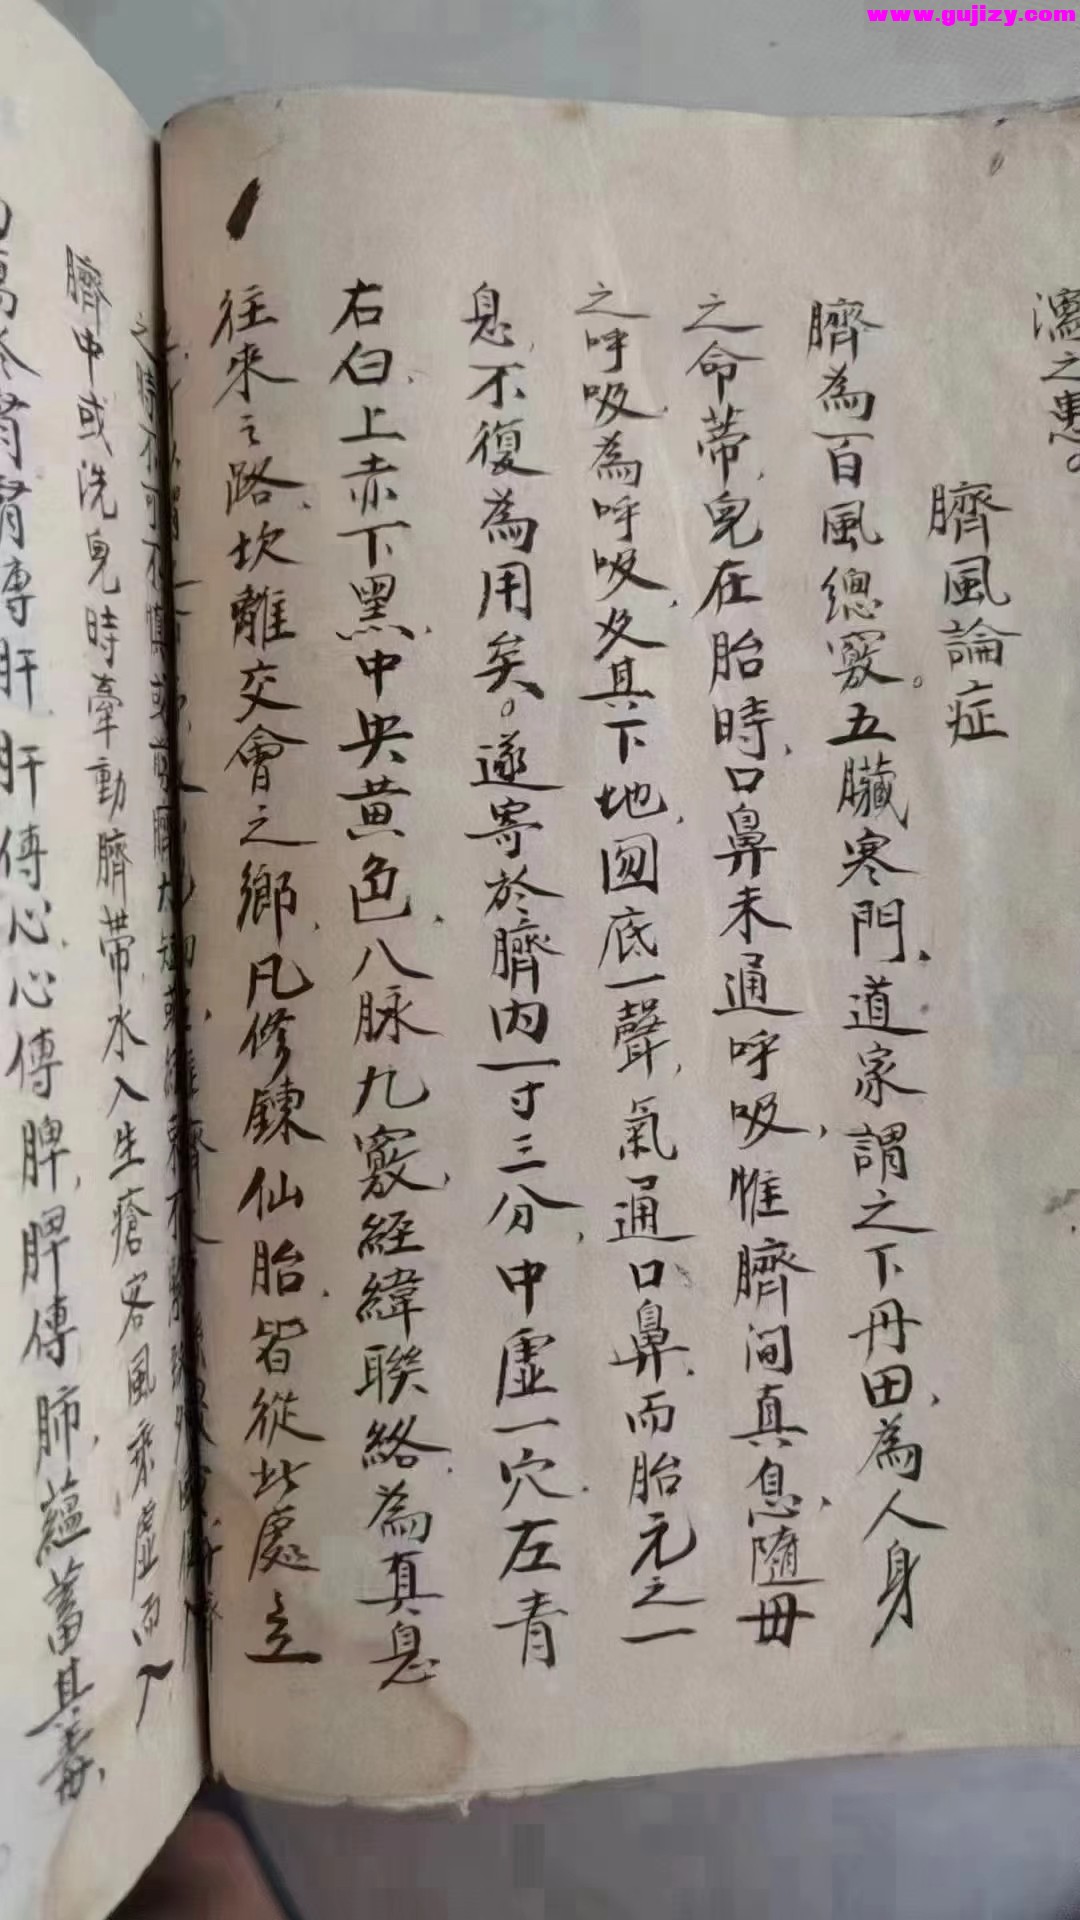 www.gujizy.com
瀉之患。
臍風論症
臍為百風總竅。五臟寒門、道家謂之下丹田、為人身
之命蒂、兒在胎時、口鼻未通呼吸、惟臍間真息、隨毋
之呼吸、為呼吸、及其下地、囫底一聲、氣通口鼻、而胎元之一
息、不復為用矣。遂寄於臍內一寸三分、中虛一穴、左青
右白、上赤下黑、中央黃色、八脉九竅、經緯聯絡、為真息
往來之路、坎離交會之鄉、凡修鍊仙胎、皆從此處立
臍中或洗兒時牽動臍帶、水入生瘡客風乘虛而入
腎傳肝、肝傳心、心傳脾、脾傳肺、蘊蓄其毒、